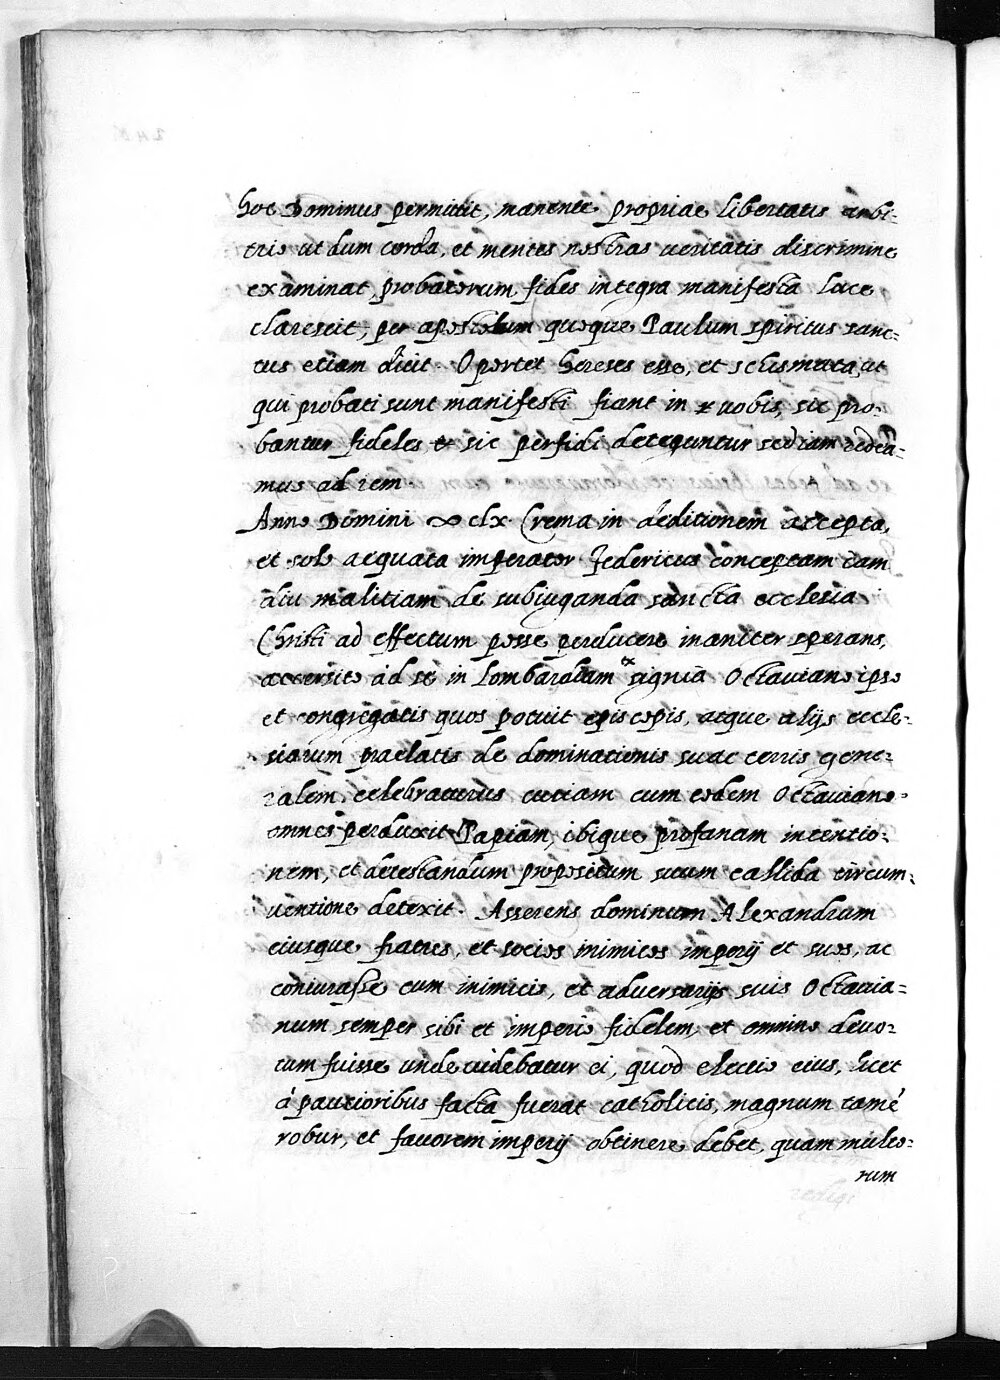 hoc Dominus permittit, manente propriae libertatis arbi-
trio ut dum corda, et mentes nostras ueritatis discrimine
examinat, probatorum fides integra manifesta luce
clarescit, per apostolum quoque Paulum spiritus sanc-
tus etiam dicit. Oportet hereses esse, et schismata, ut
qui probati sunt manifesti fiant in uobis, sic pro-
bantur fideles et sic perfidi deteguntur sed iam redea-
mus ad rem.
Anno Domini ∞ clx. Crema in deditionem accepta,
et solo aequata imperator Federicus conceptam tam
diu malitiam de subiuganda sancta ecclesia
Christi ad effectum posse perducere inaniter sperans,
accersito ad se in Lombardiam ex signia Octauiano ipso
et congregatis quos potuit episcopis, atque alijs eccle-
siarum praelatis de dominationis suae terris gene-
ralem, celebraturus curiam cum eodem Octauiano
omnes perduxit Papiam, ibique profanam intentio-
nem, et detestandum propositum suum callida circum-
uentione detexit. Asserens dominum Alexandrum
eiusque fratres, et socios inimicos imperij et suos, ac
coniurasse cum inimicis, et aduersarijs suis Octauia-
num semper sibi et imperio fidelem, et omnino deuo-
tum fuisse unde uidebatur ei, quod electio eius, licet
à paucioribus facta fuerat catholicis, magnum tamē
robur, et fauorem imperij obtinere debet, quam multo-
rum